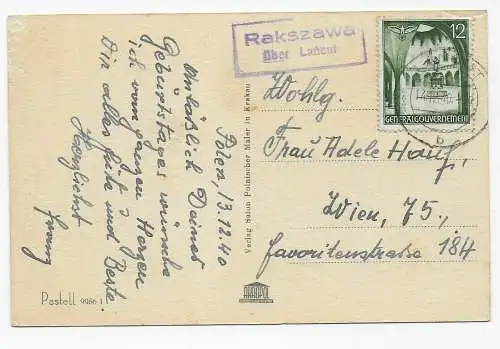 Polen, 13.12.40
Anläßlich Deines
Geburtstages wünsche
ich vom ganzen Herzen
Dir alles Gute und Beste.
Herzlichst
Franz
Pastell 9986 I
Verlag Salon Polnischer Maler in Krakau
AKROPOL
Rakszawa
über Lańcut
12
GENERALGOUVERNEMENT
b
Wohlg.
Frau Adele Hauf,
Wien, 75.,
Favoritenstraße 184